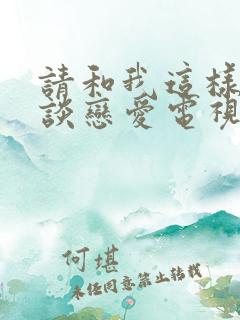 請和我這樣
談戀愛電視
何堪
未經同意禁止轉載